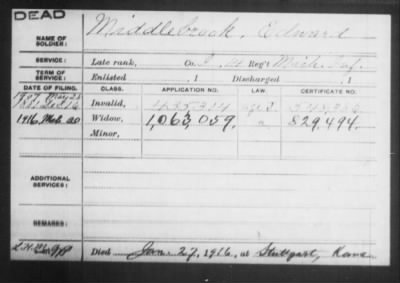 DEAD
NAME OF SOLDIER: Middlebrook, Edward
SERVICE: Late rank, Co. Reg't Mich. Inf.
TERM OF SERVICE: Enlisted , 1 Discharged , 1
DATE OF FILING. CLASS. APPLICATION NO. LAW. CERTIFICATE NO.
Invalid,
1916, Mch. 20 Widow, 1,063,059. 829,494.
Minor,
ADDITIONAL SERVICES:
REMARKS:
Died Jan. 27, 1916, at Stuttgart, Kans